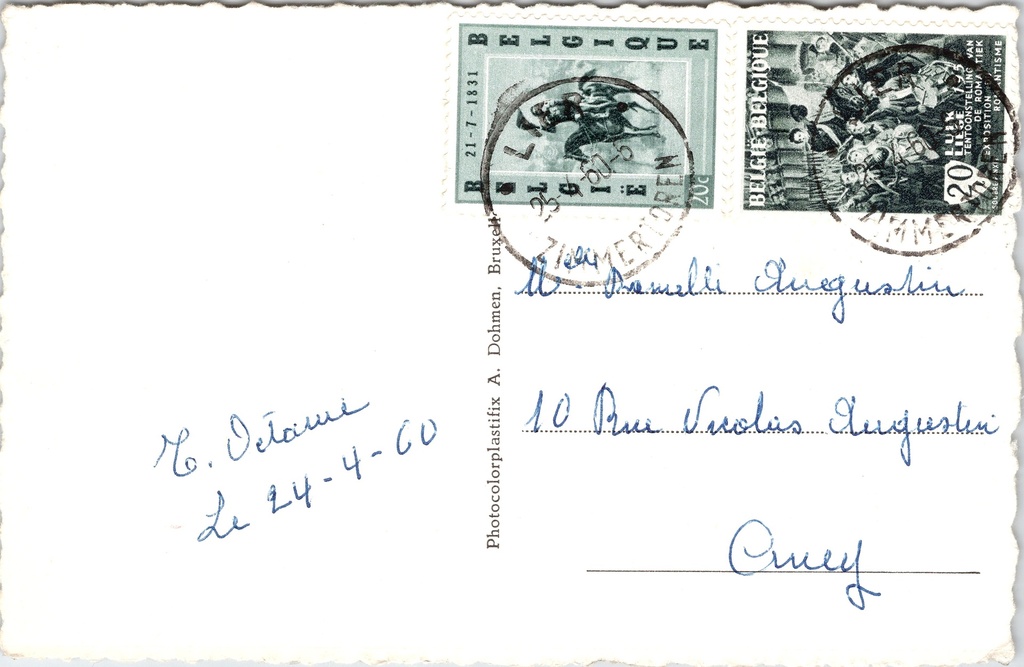 BELGIQUE
21-7-1831
BELGIË
20c
BELGIE-BELGIQUE
LUIK
LIEGE 1957
TENTOONSTELLING VAN
DE ROMANTIEK
EXPOSITION
ROMANTISME
20
ZIMMERTOREN
ZIMMERTOREN
Photocolorplastifix A. Dohmen, Bruxell
Melle Augustin
10 Rue Nicolas Augustin
Le 24-4-60